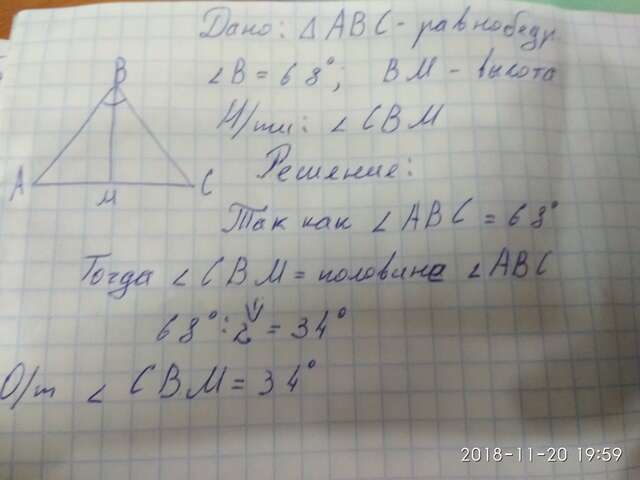 Дано: △ABC - равнобедр
∠B = 68°; BM - высота
Н/ти: ∠CBM
Решение:
Так как ∠ABC = 68°
Тогда ∠CBM = половине ∠ABC
68° : 2 = 34°
О/т ∠CBM = 34°
B
A
M
C
2018-11-20 19:59